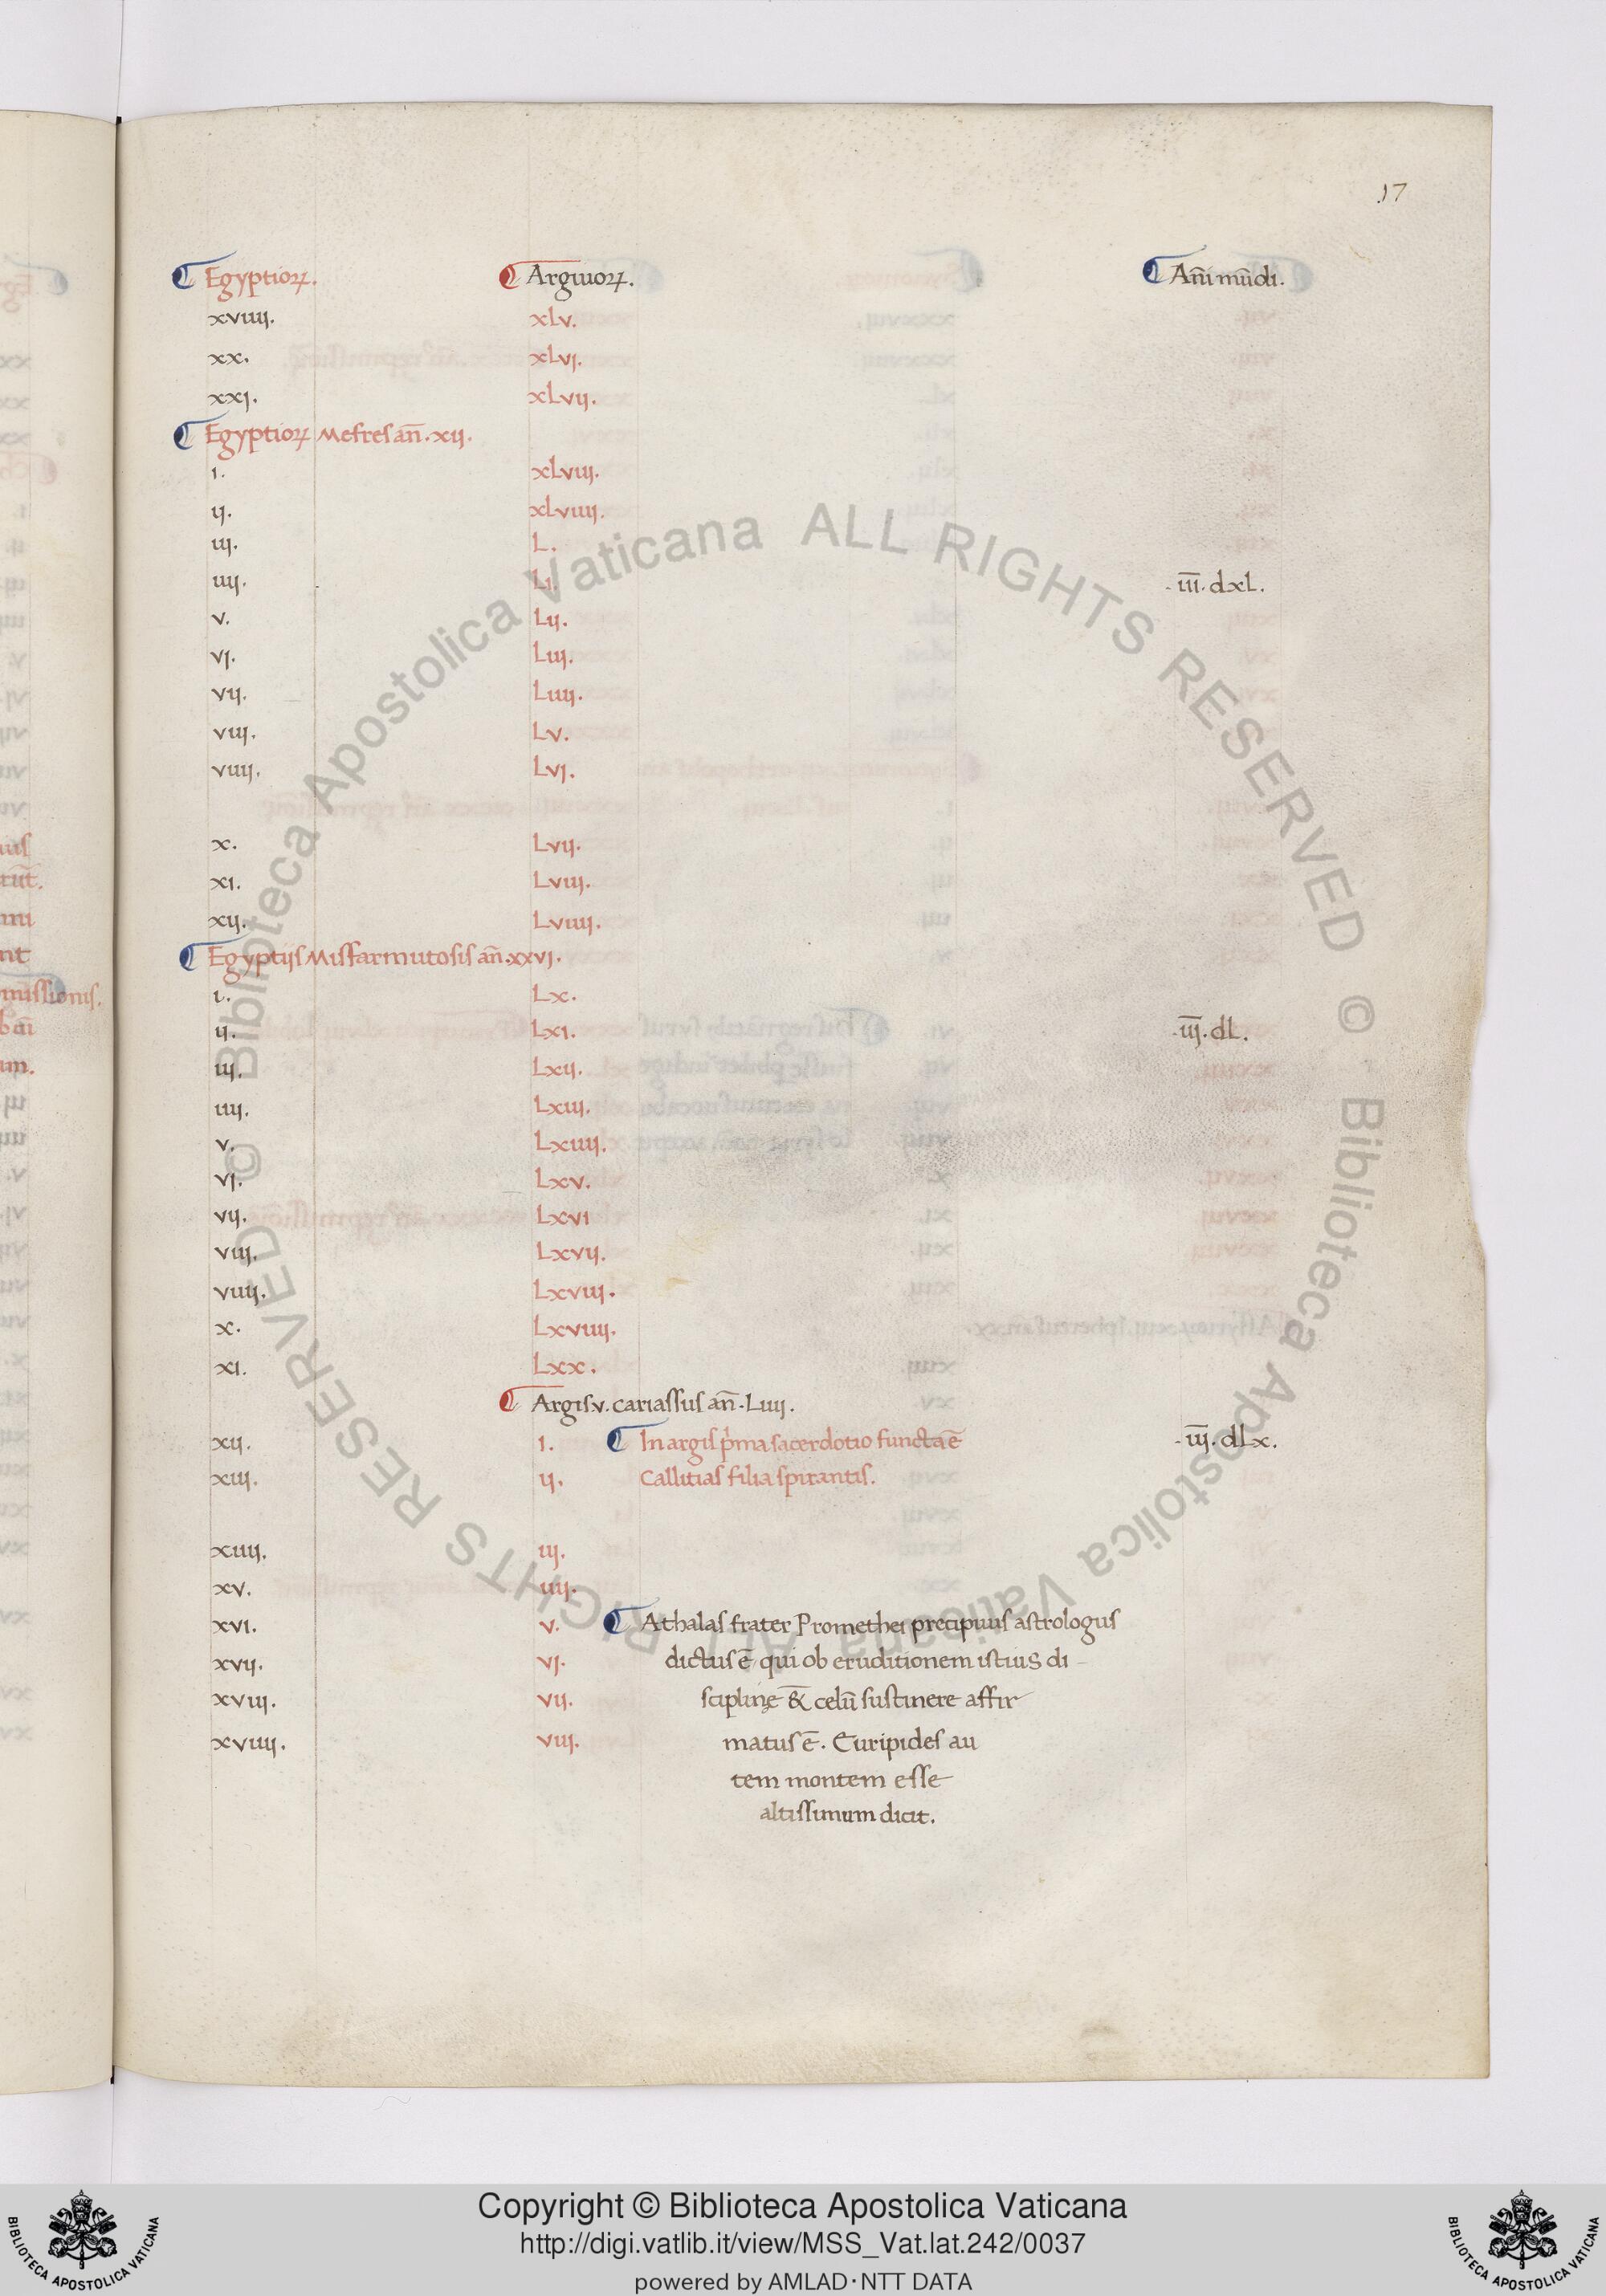 17
Egyptioꝝ. Argiuoꝝ. An̄i mūdi.
xviiij. xlv.
xx. xlvj.
xxj. xlvij.
Egyptioꝝ Mefres an̄. xij.
i. xlviij.
ij. xlviiij.
iij. L.
iiij. Li. iii̅. dxl.
v. Lij.
vj. Liij.
vij. Liiij.
viij. Lv.
viiij. Lvj.
x. Lvij.
xi. Lviij.
xij. Lviiij.
Egyptijs Misfarmutosis an̄. xxvj.
i. Lx.
ij. Lxi. iij̅. dl.
iij. Lxij.
iiij. Lxiij.
v. Lxiiij.
vj. Lxv.
vij. Lxvi
viij. Lxvij.
viiij. Lxviij.
x. Lxviiij.
xi. Lxx.
Argis. v. cariassus an̄. Liiij.
xij. i. In argis p̄ma sacerdotio functa ē iij̅. dLx.
xiij. ij. Callitias filia spirantis.
xiiij. iij.
xv. iiij.
xvi. v. Athalas frater Promethei precipuus astrologus
xvij. vj. dictus ē qui ob eruditionem istius di-
xviij. vij. sciplinę & celū sustinere affir
xviiij. viij. matus ē. Euripides au
tem montem esse
altissimum dicit.
© Biblioteca Apostolica Vaticana ALL RIGHTS RESERVED
© Biblioteca Apostolica Vaticana ALL RIGHTS RESERVED
Copyright © Biblioteca Apostolica Vaticana
http://digi.vatlib.it/view/MSS_Vat.lat.242/0037
powered by AMLAD·NTT DATA
BIBLIOTECA APOSTOLICA VATICANA
BIBLIOTECA APOSTOLICA VATICANA